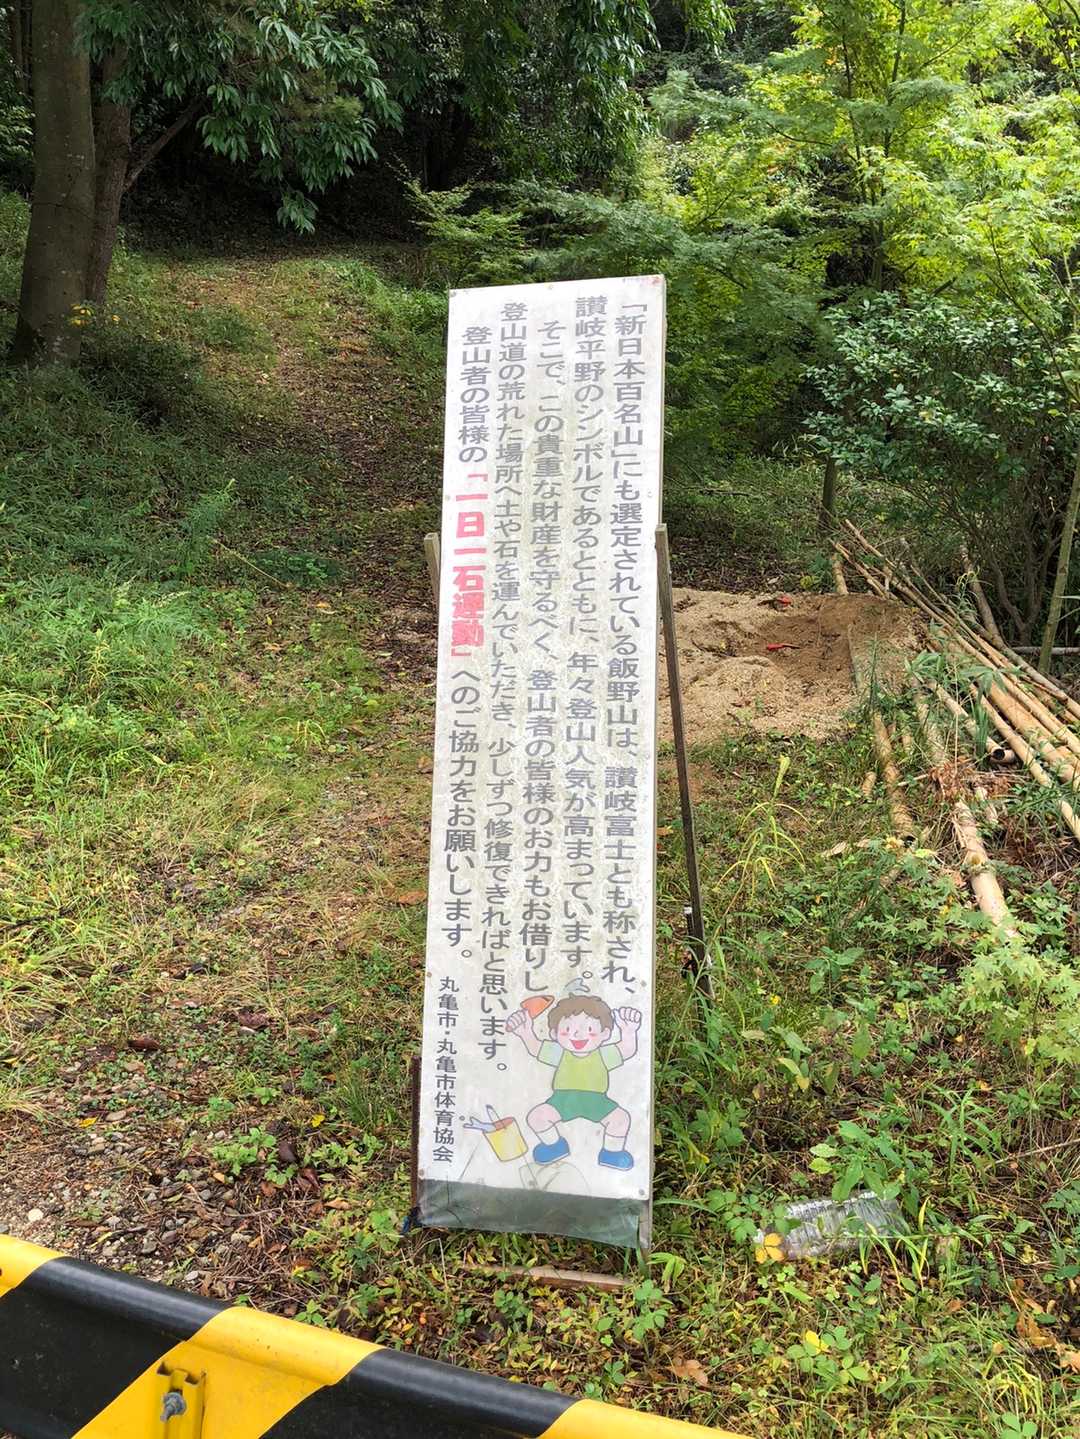 「新日本百名山」にも選定されている飯野山は、讃岐富士とも称され、
讃岐平野のシンボルであるとともに、年々登山人気が高まっています。
そこで、この貴重な財産を守るべく、登山者の皆様のお力もお借りし、
登山道の荒れた場所へ土や石を運んでいただき、少しずつ修復できればと思います。
登山者の皆様の「一日一石運動」へのご協力をお願いします。
丸亀市・丸亀市体育協会